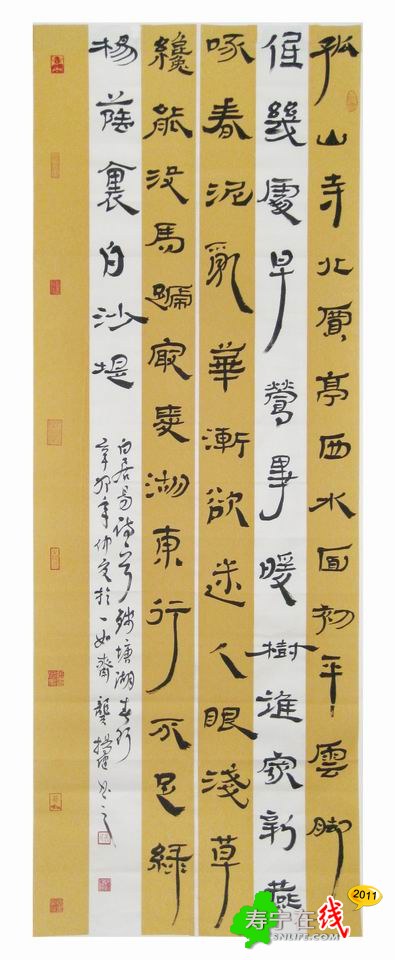 孤山寺北賈亭西水面初平雲脚
低幾處早鶯爭暖樹誰家新燕
啄春泥亂華漸欲迷人眼淺草
纔能没馬蹄最愛湖東行不足緑
楊蔭裏白沙堤
白居易詩一首 錢塘湖春行
辛卯年仲夏於一如齋 龔
2011
寿宁在线
SNLIFE.COM